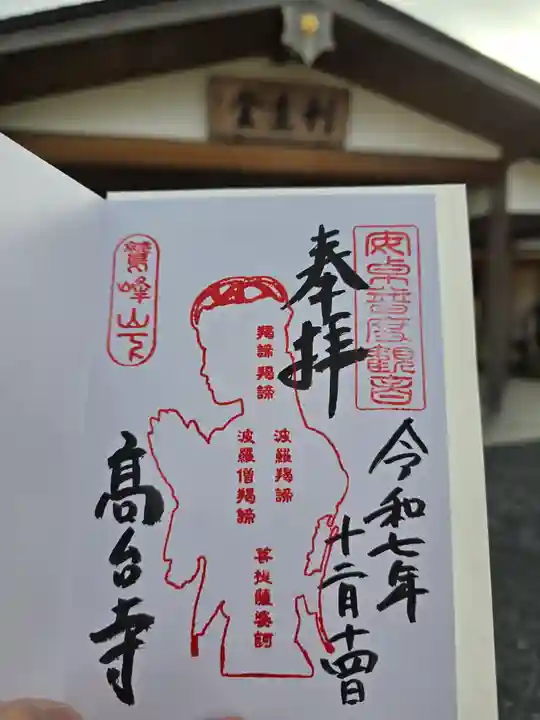 利生堂
安卓普度観音
奉拝
令和七年
十二月十四日
羯諦羯諦
波羅羯諦
波羅僧羯諦
菩提薩婆訶
鷲峰山下
高台寺